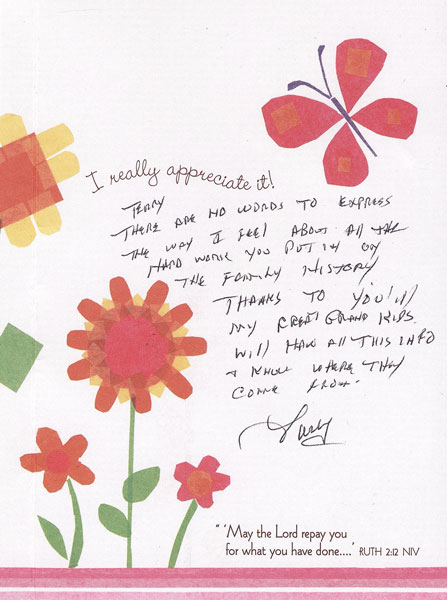 I really appreciate it!
TERRY
THERE ARE NO WORDS TO EXPRESS
THE WAY I FEEL ABOUT All THE
HARD WORK YOU PUT IN ON
THE FAMILY HISTORY
THANKS TO YOU!
MY GREAT GRAND KIDS
WILL HAVE All THIS INFO
& KNOW WHERE THEY
COME FROM.
" 'May the Lord repay you
for what you have done....' RUTH 2:12 NIV